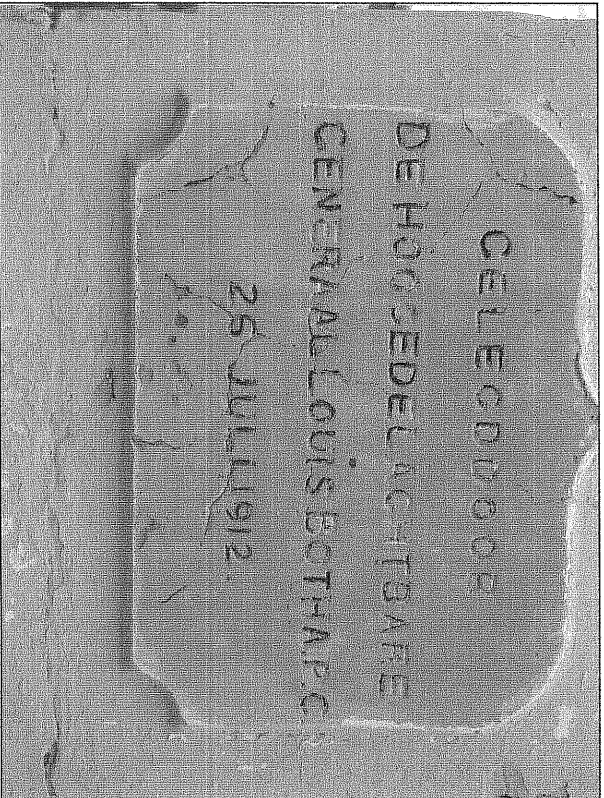 GELEGD DOOR
DE HOOGEDELACHTBARE
GENERAAL LOUIS BOTHA P.C.
25 JULI 1912.